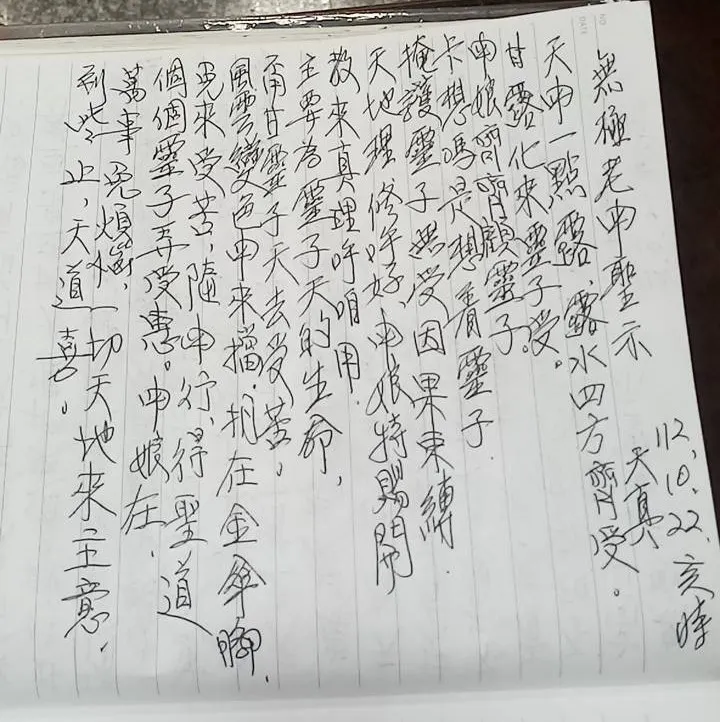 112.10.22.亥時
天真
無極老申聖示
天申一點露,露水四方齊受。
甘露化來靈子受。
申娘齊齊顧靈子。
卡想嗎是想看靈子.
掩護靈子無受因果束縛.
天地理修呼好,申娘特賜開
教來真理呼咱用.
主要為靈子天的生命,
甘靈子天去受苦。
風雲變色申來擋.在金傘腳,
免來受苦,隨申行,得聖道
個個靈子受惠。申娘在,
萬事免煩惱,一切天地來主意,
到此止,天道喜。